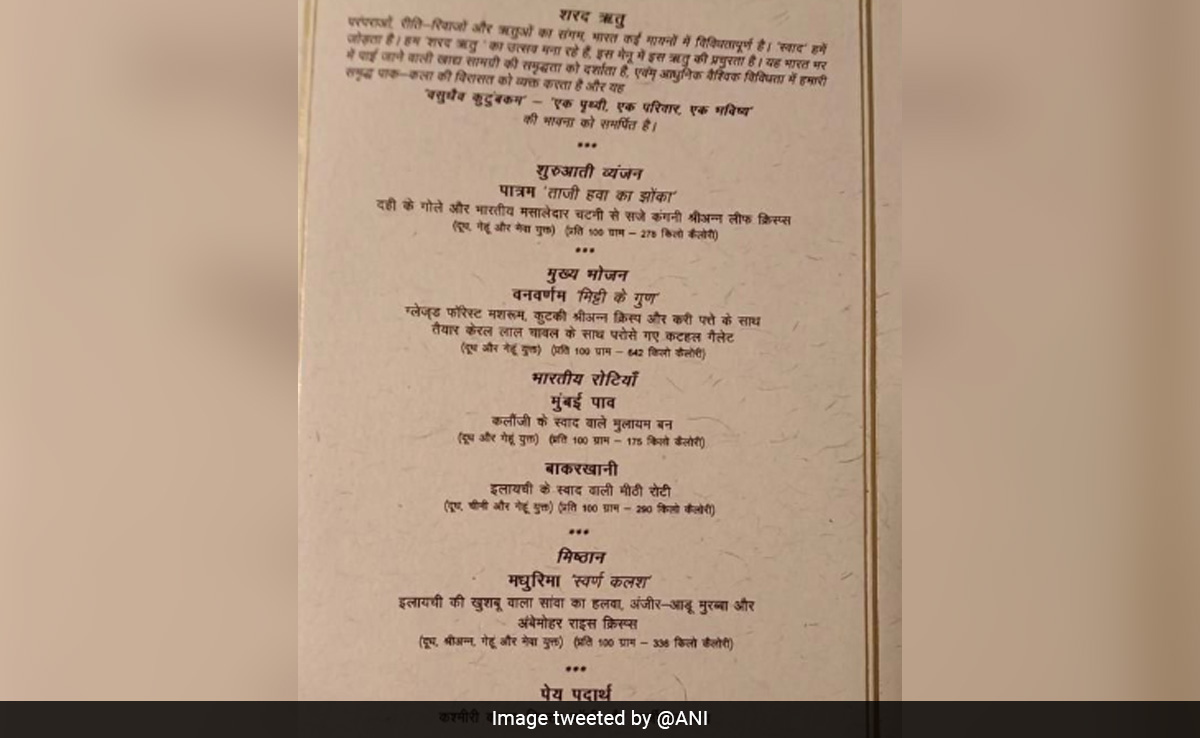 शरद ऋतु
परंपराओं, रीति–रिवाजों और ऋतुओं का संगम, भारत कई मायनों में विविधतापूर्ण है। 'स्वाद' हमें
जोड़ता है। हम 'शरद ऋतु ' का उत्सव मना रहे हैं, इस मेनू में इस ऋतु की प्रचुरता है। यह भारत भर
में पाई जाने वाली खाद्य सामग्री की समृद्धता को दर्शाता है, एवंम् आधुनिक वैश्विक विविधता में हमारी
समृद्ध पाक–कला की विरासत को व्यक्त करता है और यह
'वसुधैव कुटुंबकम' – 'एक पृथ्वी, एक परिवार, एक भविष्य'
की भावना को समर्पित है।
***
शुरुआती व्यंजन
पात्रम 'ताजी हवा का झोंका'
दही के गोले और भारतीय मसालेदार चटनी से सजे कंगनी श्रीअन्न लीफ क्रिस्प्स
(दूध, गेहूं और मेवा युक्त) (प्रति 100 ग्राम – 275 किलो कैलोरी)
***
मुख्य भोजन
वनवर्णम 'मिट्टी के गुण'
ग्लेज्ड फॉरेस्ट मशरूम, कुटकी श्रीअन्न क्रिस्प और करी पत्ते के साथ
तैयार केरल लाल चावल के साथ परोसे गए कटहल गैलेट
(दूध और गेहूं युक्त) (प्रति 100 ग्राम – 642 किलो कैलोरी)
भारतीय रोटियाँ
मुंबई पाव
कलौंजी के स्वाद वाले मुलायम बन
(दूध और गेहूं युक्त) (प्रति 100 ग्राम – 175 किलो कैलोरी)
बाकरखानी
इलायची के स्वाद वाली मीठी रोटी
(दूध, चीनी और गेहूं युक्त) (प्रति 100 ग्राम – 290 किलो कैलोरी)
***
मिष्ठान
मधुरिमा 'स्वर्ण कलश'
इलायची की खुशबू वाला सांवा का हलवा, अंजीर–आडू मुरब्बा और
अंबेमोहर राइस क्रिस्प्स
(दूध, श्रीअन्न, गेहूं और मेवा युक्त) (प्रति 100 ग्राम – 336 किलो कैलोरी)
***
पेय पदार्थ
कश्मीरी
Image tweeted by @ANI